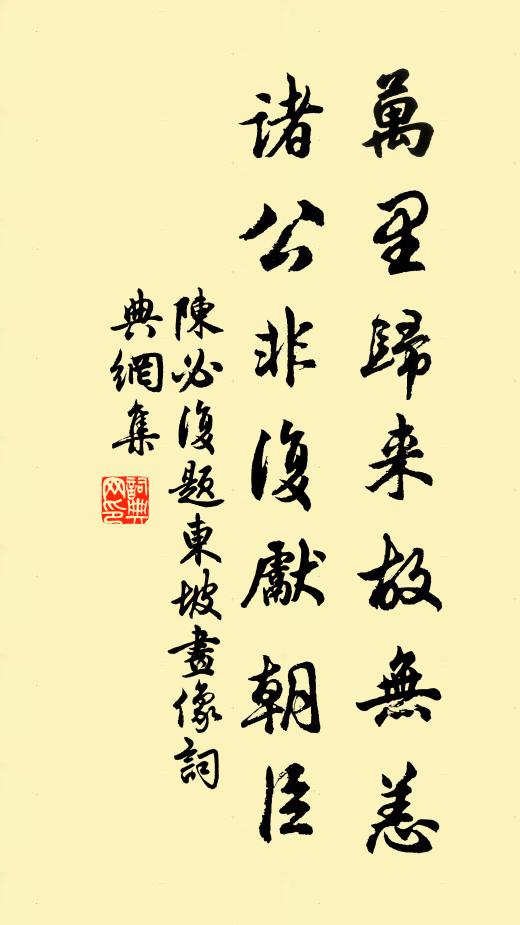 萬里歸来故無恙
諸公非復獻朝臣
陳必復題東坡畫像詞
典網集
詞典网印